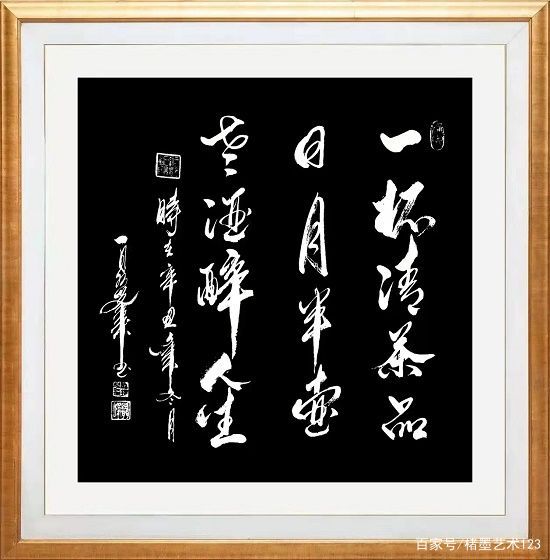 一杯清茶品
日月半壶
老酒醉人生
時在辛丑年冬月
百家号/楮墨艺术123